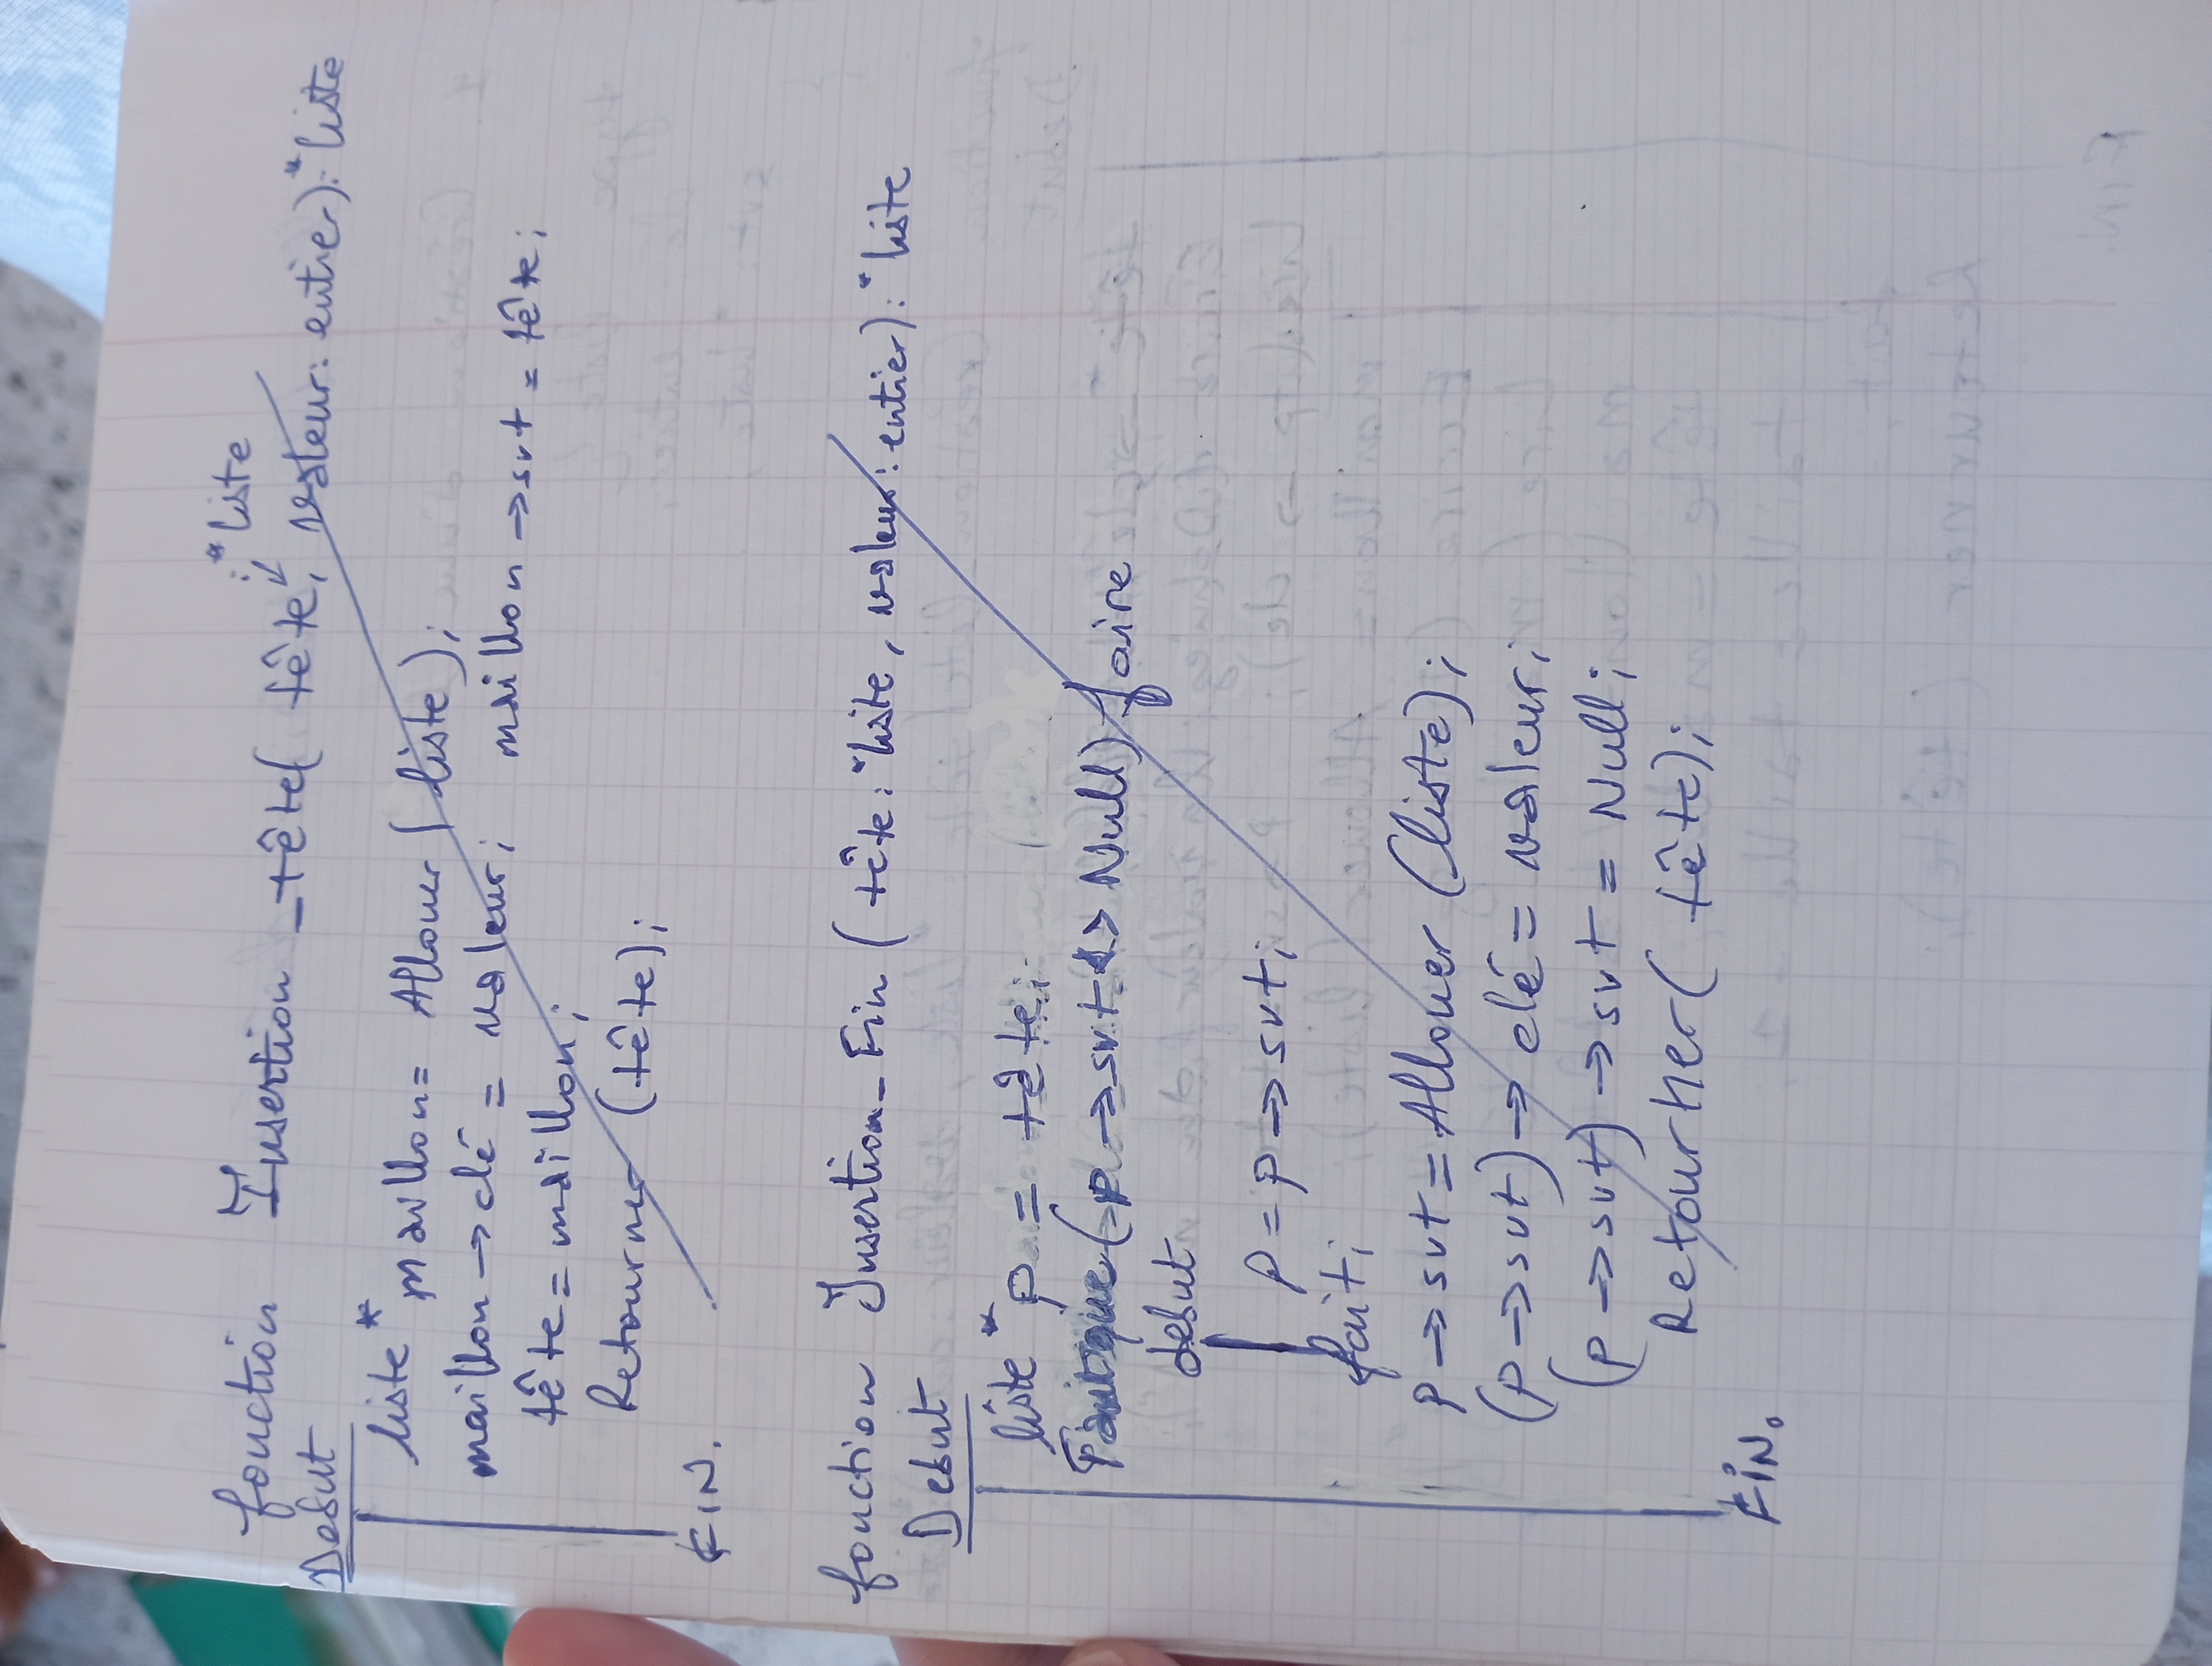 : *liste
fonction Insertion_tête( tête, valeur: entier): *liste
Debut
liste * maillon = Allouer (liste);
maillon → clé = valeur; maillon → svt = tête;
tête = maillon;
Retourner (tête);
FIN.
fonction Insertion_Fin (tête: *liste, valeur: entier): *liste
Debut
liste * p = tête;
(p → svt <> Null) faire
debut
p = p → svt;
fait;
p → svt = Allouer (liste);
(p → svt) → clé = valeur;
(p → svt) → svt = Null;
Retourner (tête);
FIN.